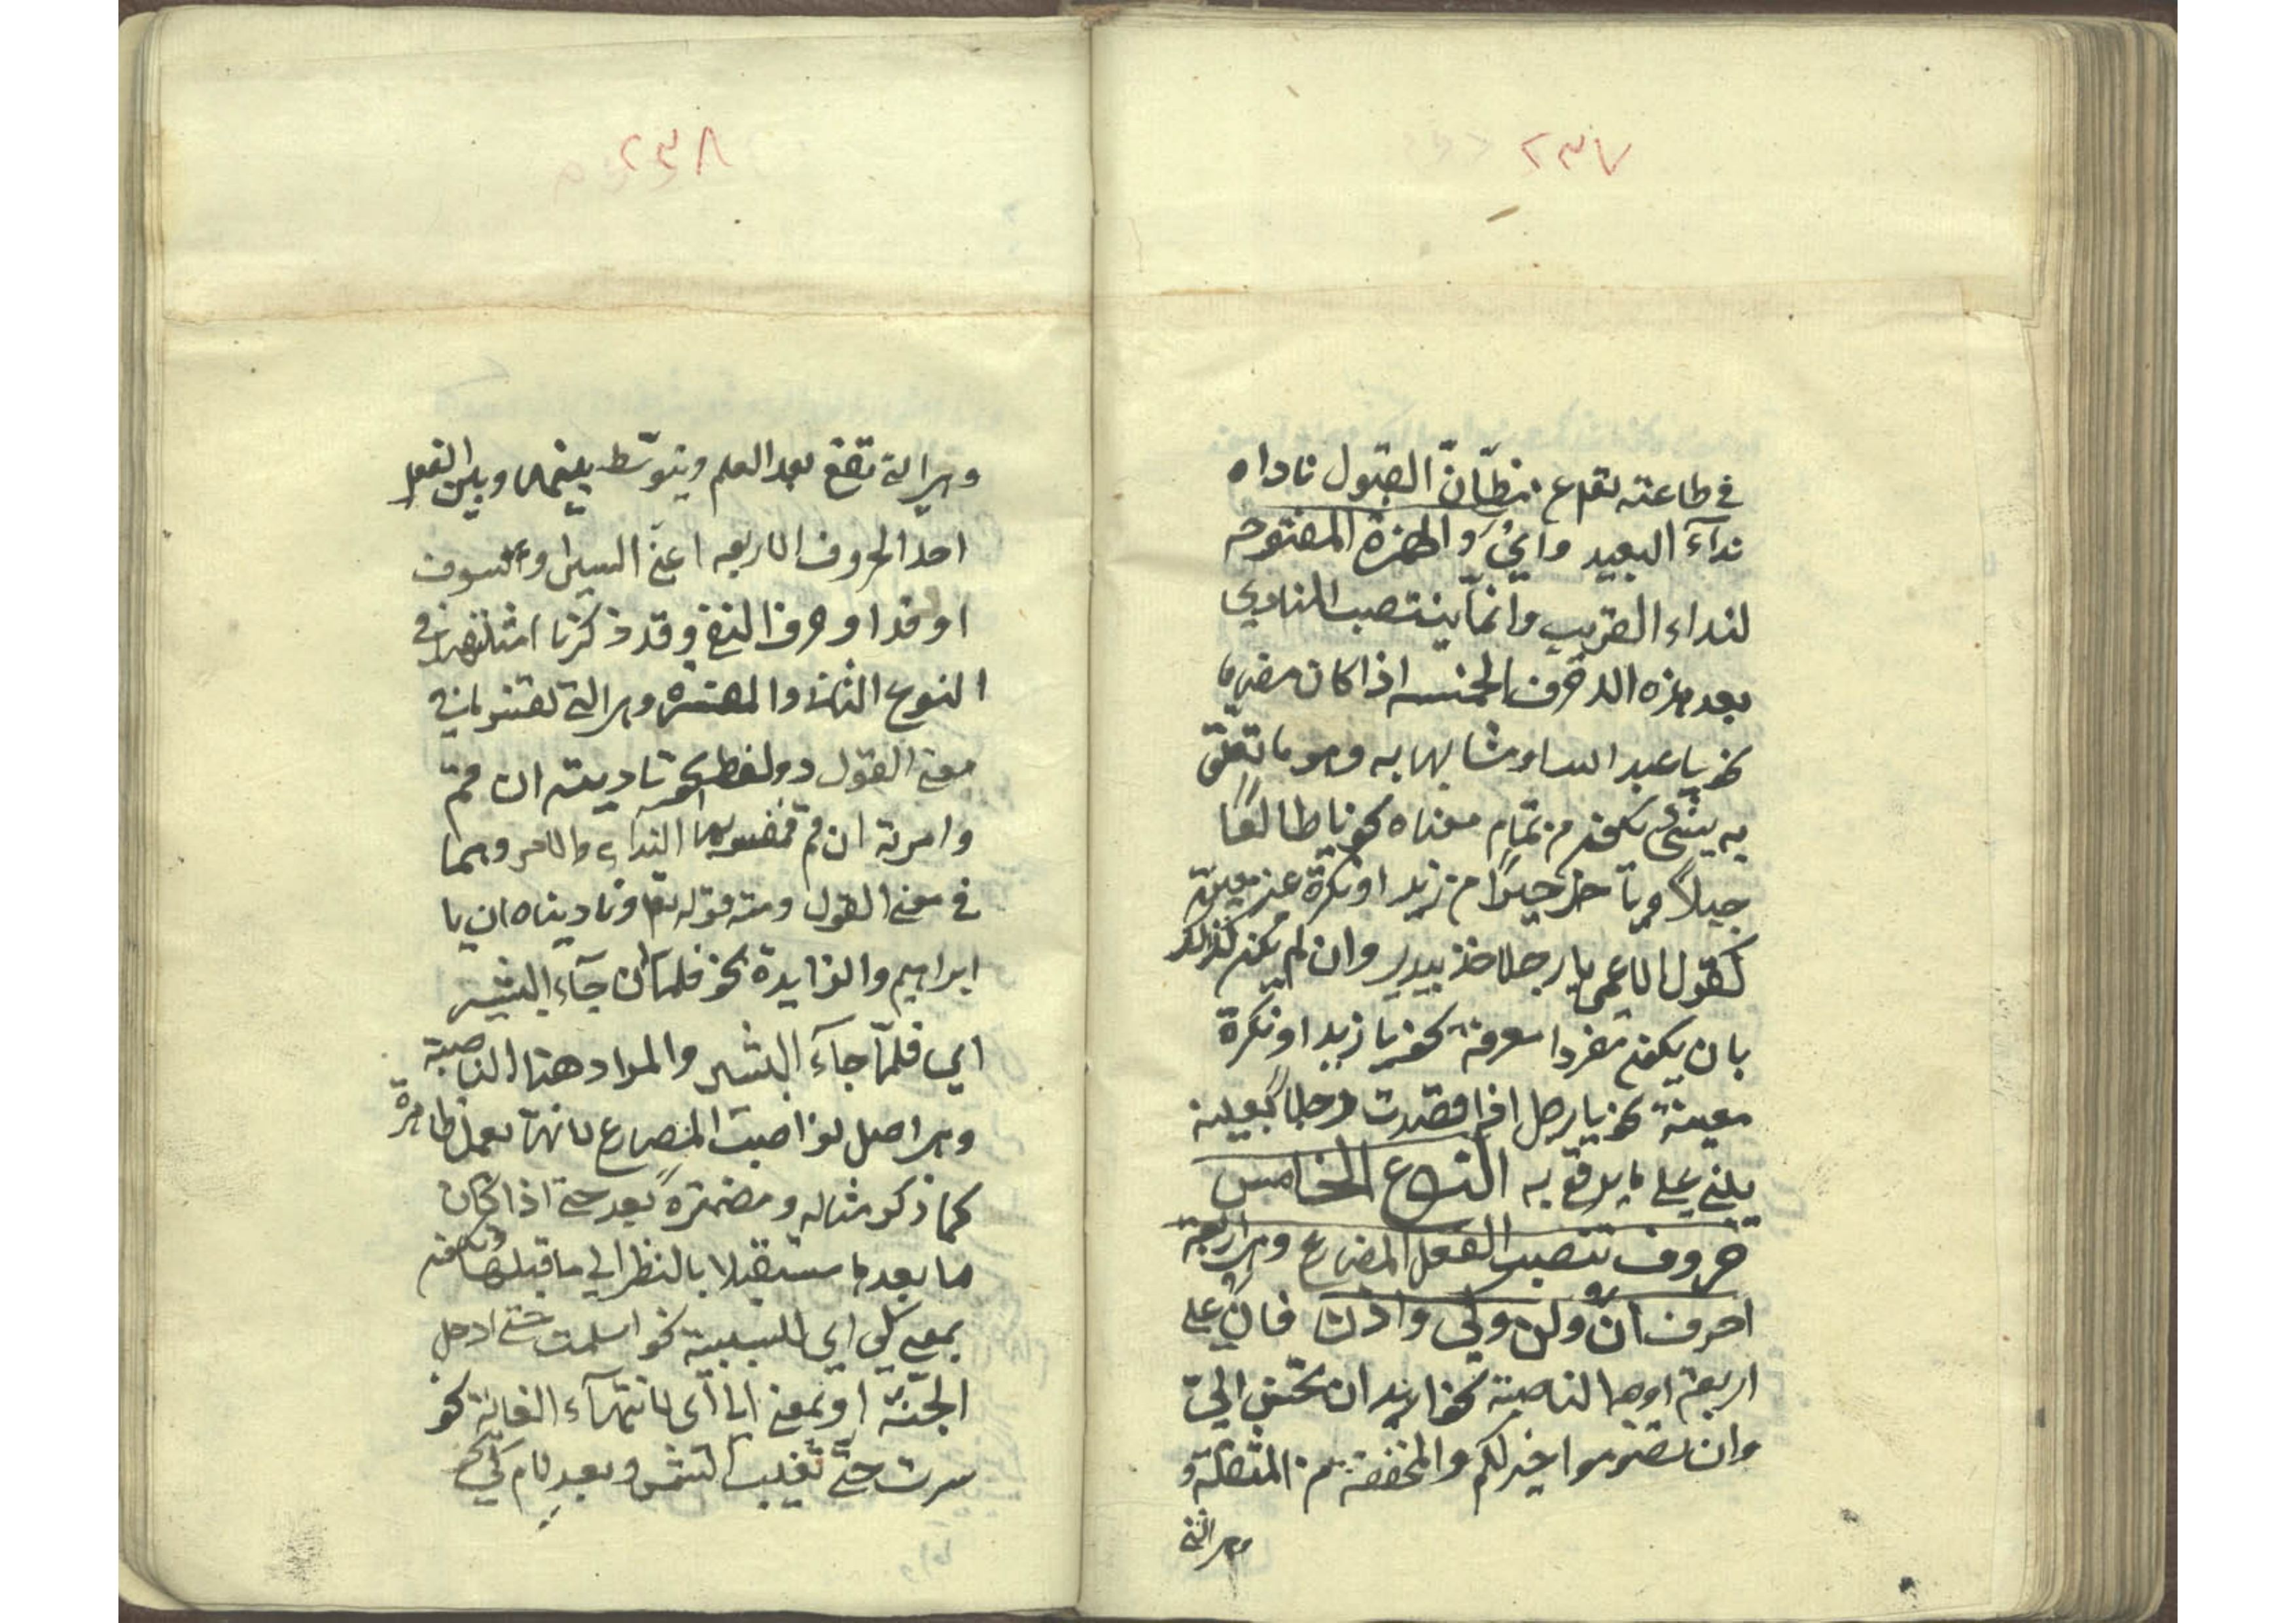 ٢٣٧
في طاعته تعم ع مظانّ القبول ناداه
ندآء البعيد وايْ والهمزة المفتوحه
لنداء القريب وانمّا ينتصب المنادي
بعد هذه الاحرف الخمسه اذا كان مضافا
نحو يا عبد الله او مشابها به وهو ما تعلّق
به شئ يكون من تمام معناه نحو يا طالعًا
جبلاً ويا خيرًا من زيد او نكرة غير معينة
كقول الاعمى يا رجلا خذ بيدي وان لم يكن كذالك
بان يكون مفردا معرفة نحو يا زيد او نكرة
معينة نحو يا رجل اذا قصدت رجلاً بعينه
يبني علي ما يرفع به النوع الخامس
حروف تنصب الفعل المضارع وهي اربعة
احرف انْ ولن وكي واذن فانْ علي
اربعة اوجه الناصبة نحو اريد ان تحسن الىّ
وان تصوموا خير لكم والمخففة من المثقلة و
وهي التي
٢٣٨
وهي التي تقع بعد العلم ويتوسّط بينها وبين الفعل
احد الحروف الاربعه اعني السين وسوف
او قد او حرف النفي وقد ذكرنا امثلتهن في
النوع الثاني والمفسرة وهي التي تفسر ما في
معني القول دون لفظه نحو ناديته ان قم
وامرته ان قم فمفسرها النداء والامر وهما
في معني القول ومنه قوله تعا وناديناه ان يا
ابراهيم والزايدة نحو فلما ان جآء البشير
اي فلمّا جآء البشير والمراد هنا الناصبة
وهي اصل نواصب المضارع لانها تعمل ظاهرة
كما ذكر مثاله ومضمرة بعد حتي اذا كان
ما بعدها مستقبلا بالنظر الي ما قبلها ويكون
بمعني كي اي للسببية نحو اسلمت حتي ادخل
الجنّة او بمعني الي اي لانتهآء الغاية نحو
سرت حتّي تغيب الشمس وبعد لام كي نحو